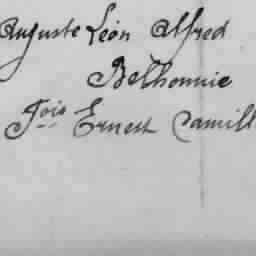 Auguste Léon Alfred
Belhonnie
Fois Ernest Camill